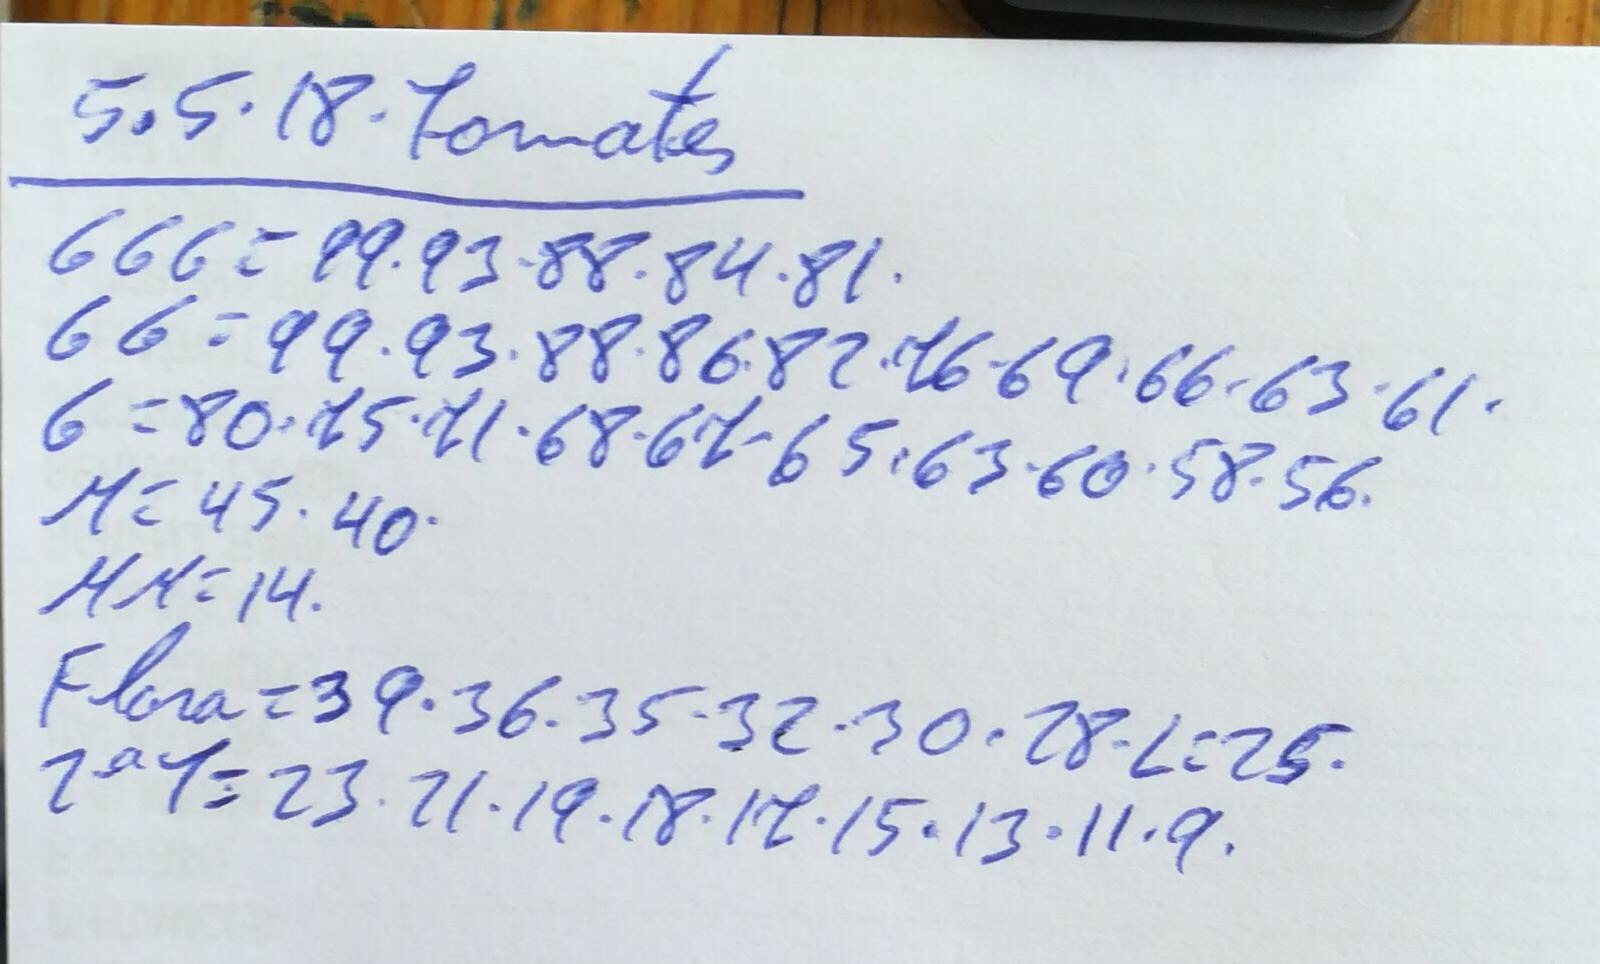 5.5.18. Tomates
GGG = 99.93.88.84.81.
GG = 99.93.88.86.82.76.69.66.63.61.
G = 80.75.71.68.67-65.63.60.58.56.
M = 45.40.
MM = 14.
Flora = 39.36.35.32.30.28.L=25.
2ª F = 23.21.19.18.17.15.13.11.9.